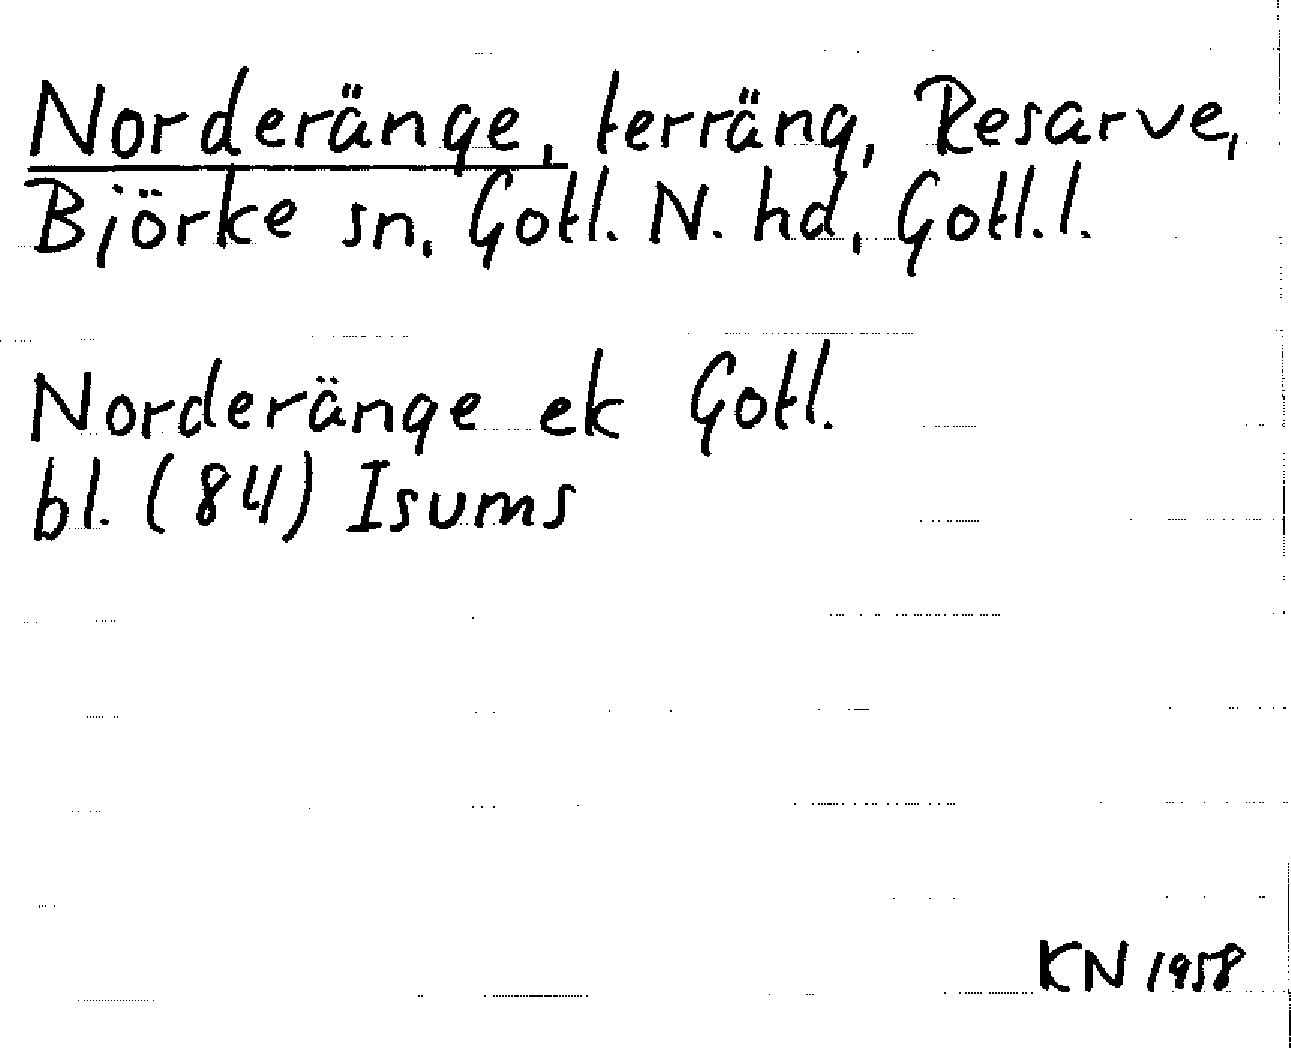 Norderänge, terräng, Resarve,
Björke sn, Gotl. N. hd, Gotl. l.
Norderänge ek Gotl.
bl. (84) Isums
KN 1958